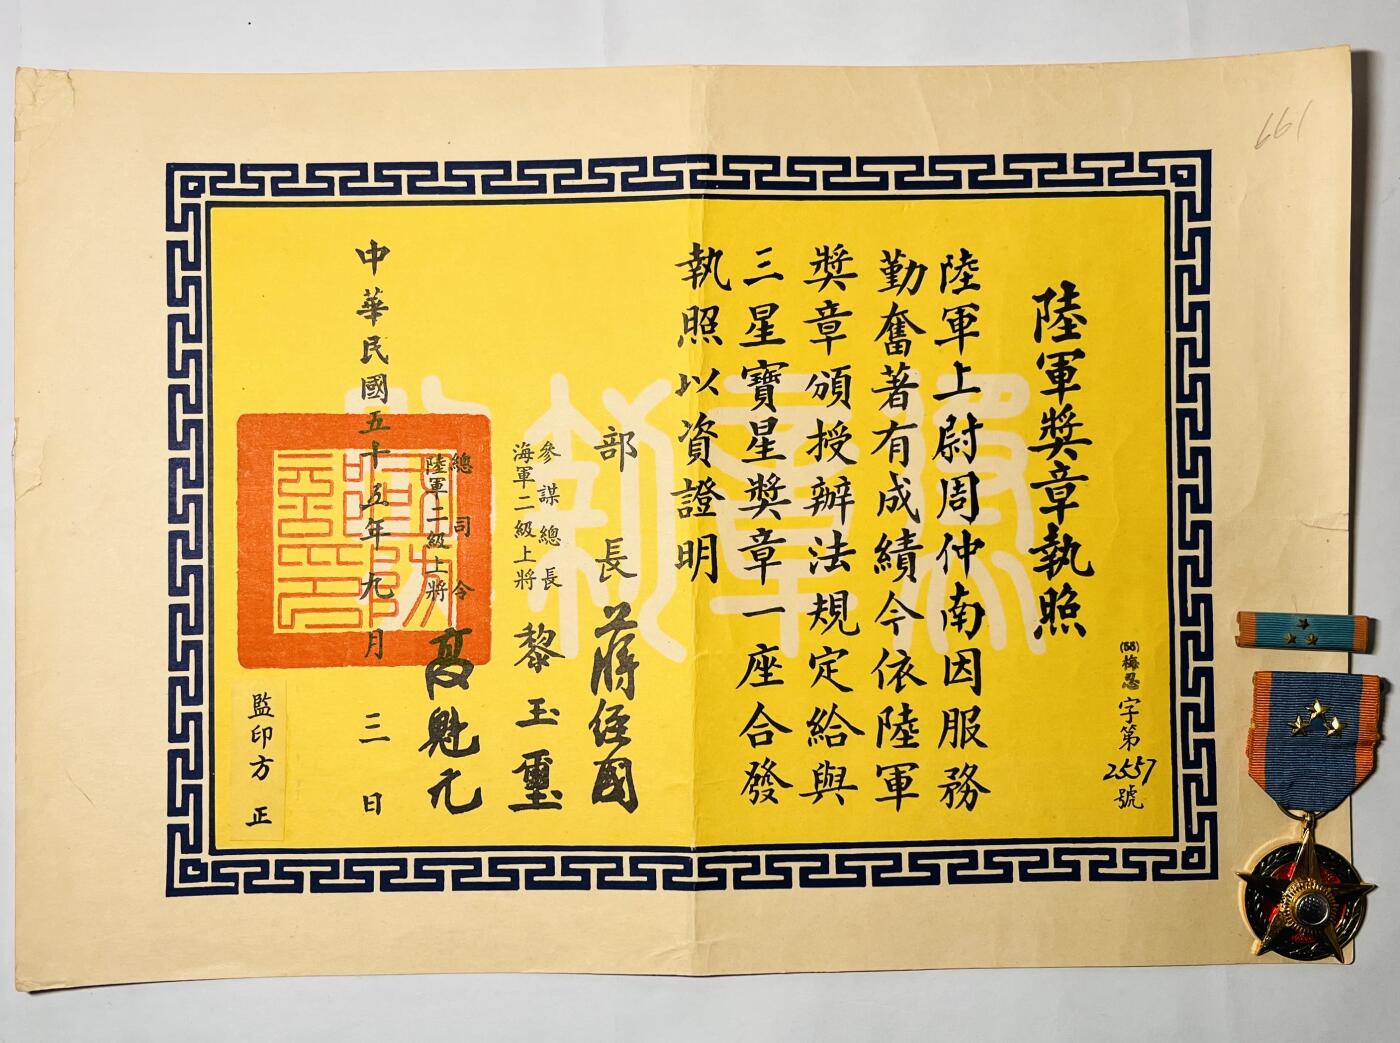 661
陸軍獎章執照
(55)梅忍字第2557號
陸軍上尉周仲南因服務
勤奮著有成績今依陸軍
獎章頒授辦法規定給與
三星寶星獎章一座合發
執照以資證明
部長蔣經國
參謀總長
海軍二級上將
黎玉璽
總司令
陸軍二級上將
高魁元
中華民國五十五年九月三日
監印方正
國防部印